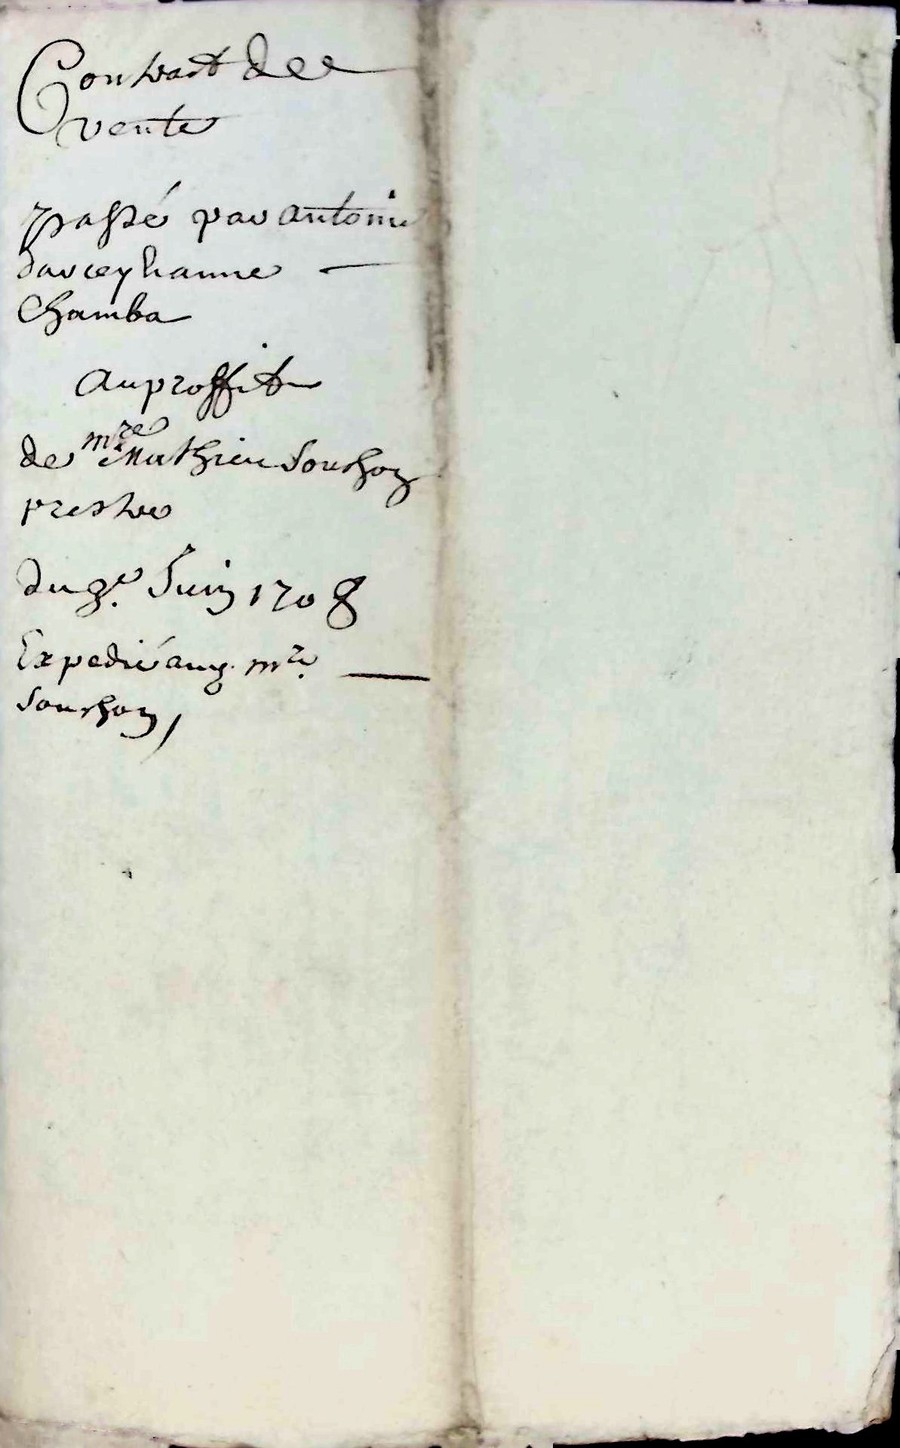 Contract de
vente
passé par antoine
darceyhanne
Chamba
au proffit
de mre Mathieu Souchon
prestre
du 9e Juin 1708
Expedié aug. mre
Souchon